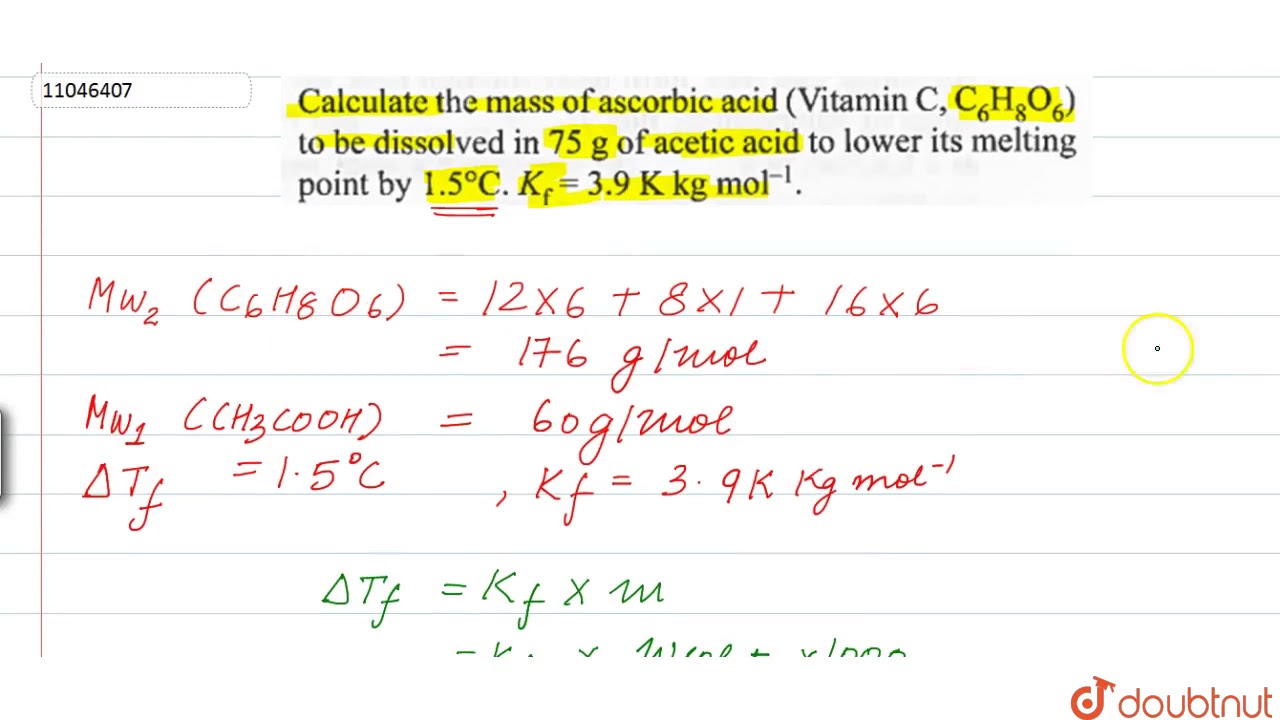 11046407
Calculate the mass of ascorbic acid (Vitamin C, C₆H₈O₆)
to be dissolved in 75 g of acetic acid to lower its melting
point by 1.5°C. K_f = 3.9 K kg mol⁻¹.
Mw₂ (C6H8O6) = 12×6 + 8×1 + 16×6
= 176 g/mol
Mw₁ (CH3COOH) = 60g/mol
ΔT_f = 1.5°C , K_f = 3.9K Kg mol⁻¹
ΔT_f = K_f × m
= × ×1000
doubtnut